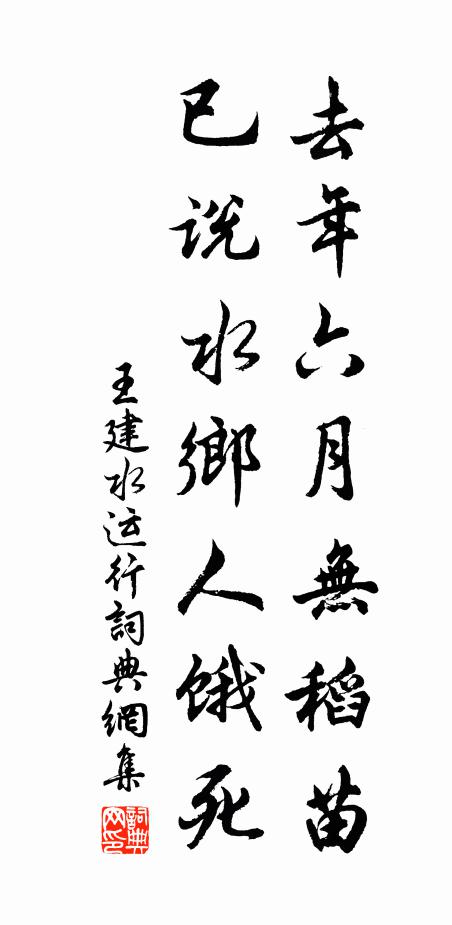 去年六月無稻苗
已說水鄉人餓死
王建水运行詞典網集
詞典网印